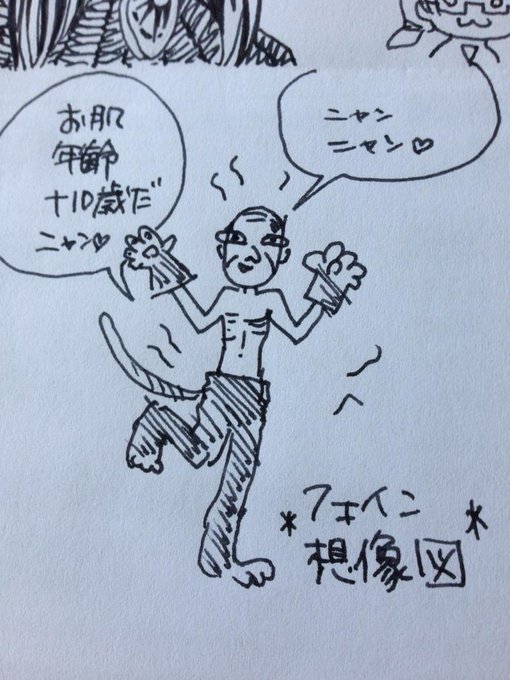 ニャン
ニャン♡
お肌
年齢
+10歳だ
ニャン♡
*フェイン
想像図*